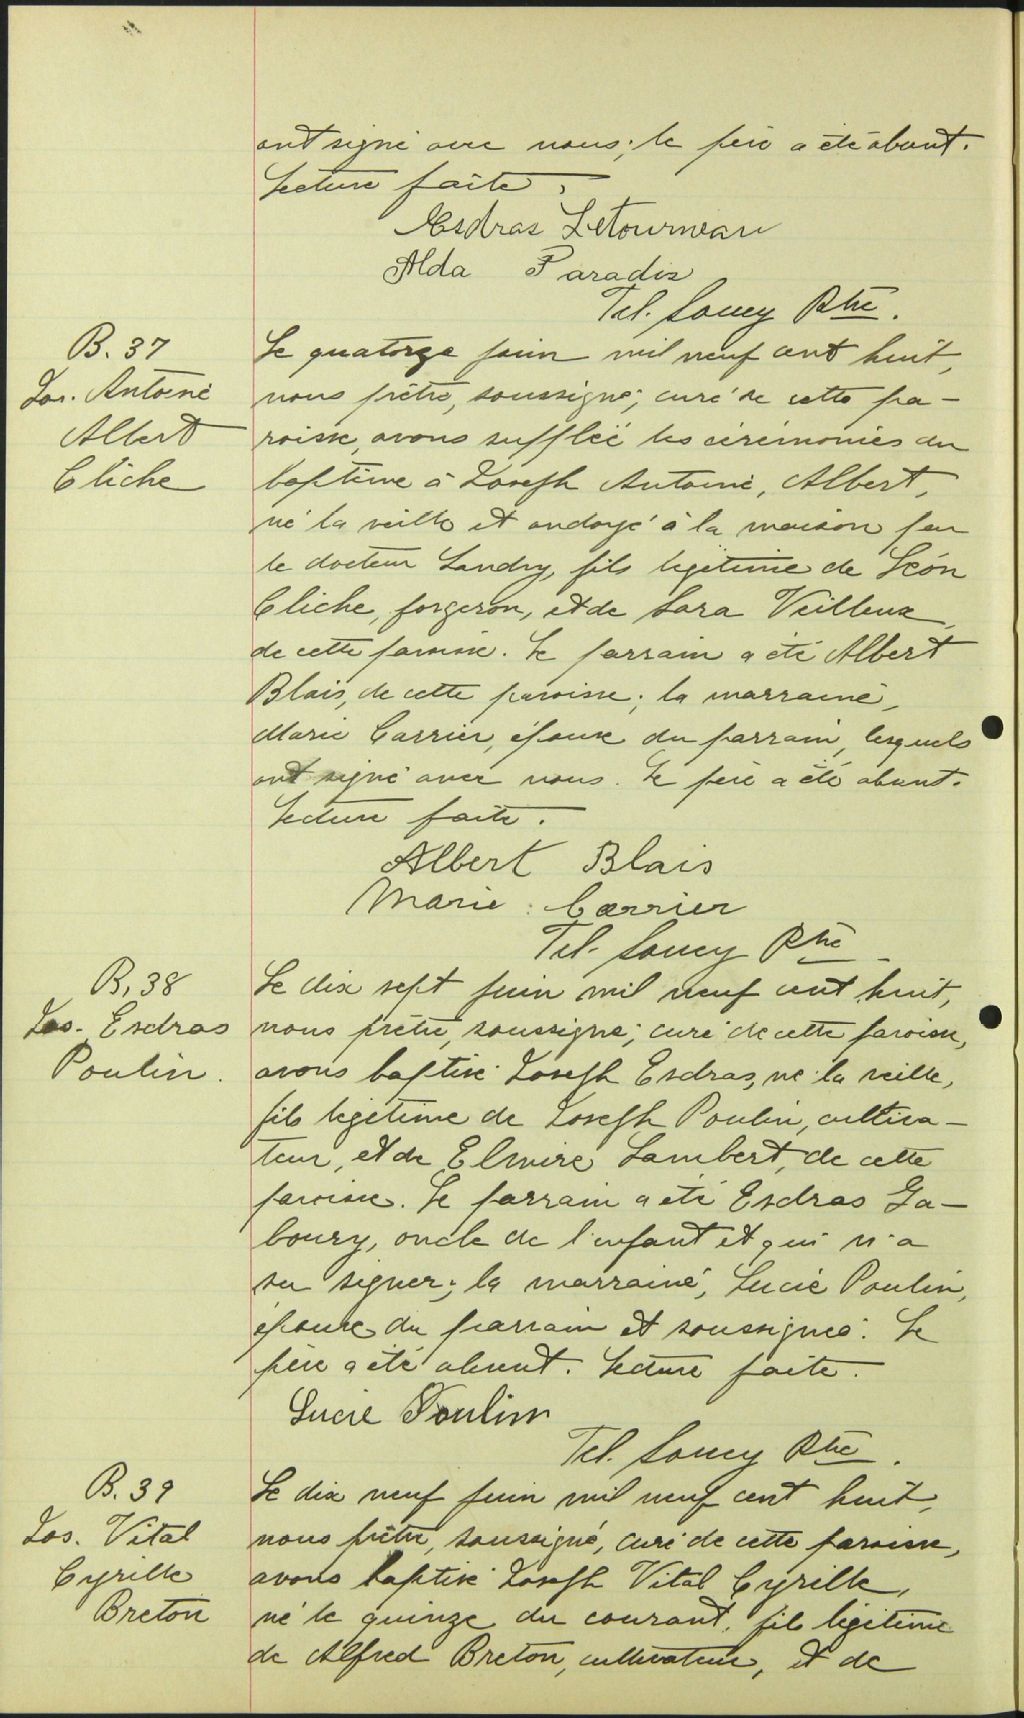 ont signé avec nous; le père a été absent.
Lecture faite.
Esdras Letourneau
Alda Paradis
Tel. Soucy Ptre.
B. 37
Jos. Antoine
Albert
Cliche
Le quatorze juin mil neuf cent huit,
nous prêtre, soussigné, curé de cette pa-
roisse, avons suppléé les cérémonies du
baptême à Joseph Antoine, Albert,
né la veille et ondoyé à la maison par
le docteur Landry, fils légitime de Léon
Cliche, forgeron, et de Sara Veilleux,
de cette paroisse. Le parrain a été Albert
Blais, de cette paroisse; la marraine,
Marie Carrier, épouse du parrain, lesquels
ont signé avec nous. Le père a été absent.
Lecture faite.
Albert Blais
Marie Carrier
Tel. Soucy Ptre
B. 38
Jos. Esdras
Poulin.
Le dix sept juin mil neuf cent huit,
nous prêtre, soussigné, curé de cette paroisse,
avons baptisé Joseph Esdras, né la veille,
fils légitime de Joseph Poulin, cultiva-
teur, et de Elmire Lambert, de cette
paroisse. Le parrain a été Esdras Ga-
boury, oncle de l'enfant et qui n'a
su signer; la marraine, Lucie Poulin,
épouse du parrain et soussignée. Le
père a été absent. Lecture faite.
Lucie Poulin
Tel. Soucy Ptre.
B. 39
Jos. Vital
Cyrille
Breton
Le dix neuf juin mil neuf cent huit,
nous prêtre, soussigné, curé de cette paroisse,
avons baptisé Joseph Vital Cyrille,
né le quinze du courant, fils légitime
de Alfred Breton, cultivateur, et de